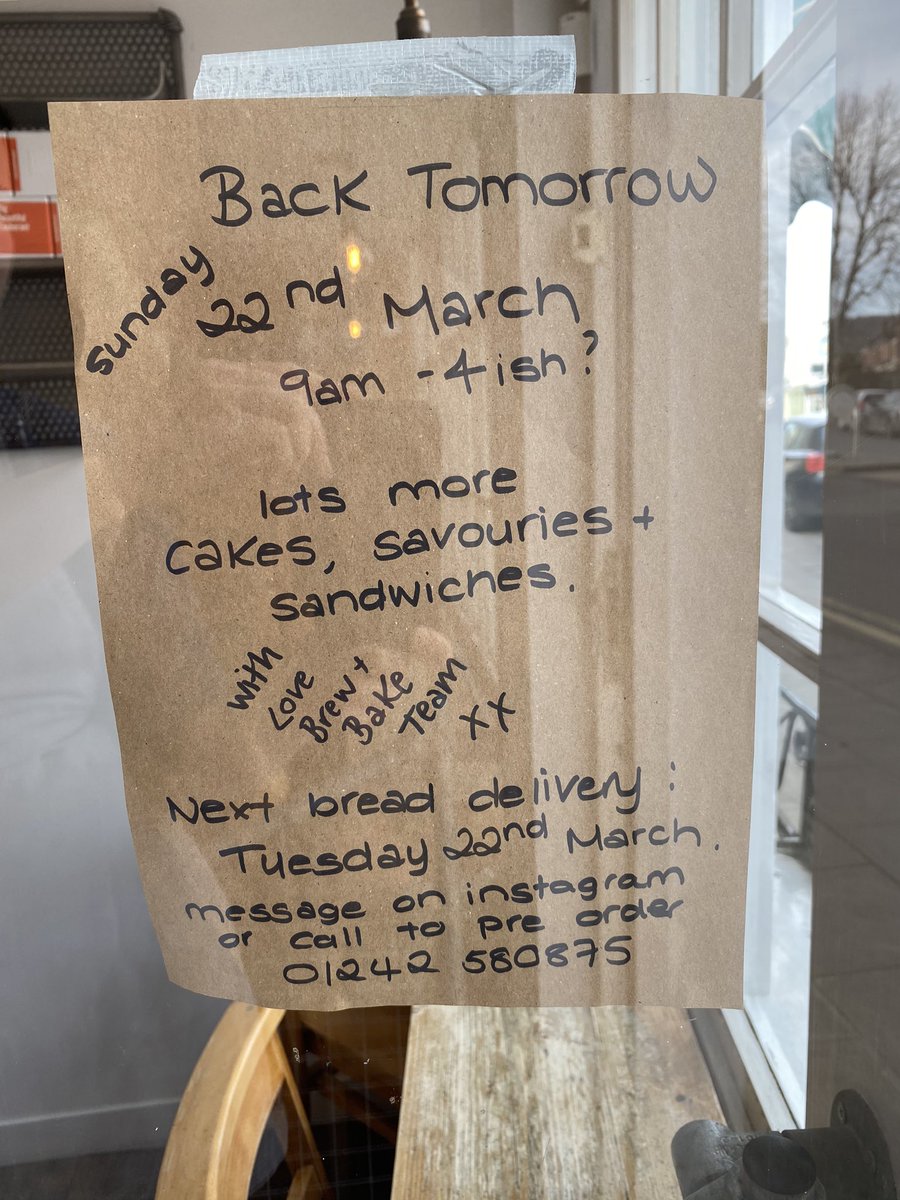 Back Tomorrow
Sunday 22nd March
9am - 4ish?
lots more
cakes, savouries +
sandwiches.
with
Love
Brew +
Bake
Team
xx
Next bread delivery:
Tuesday 22nd March.
message on instagram
or call to pre order
01242 580875